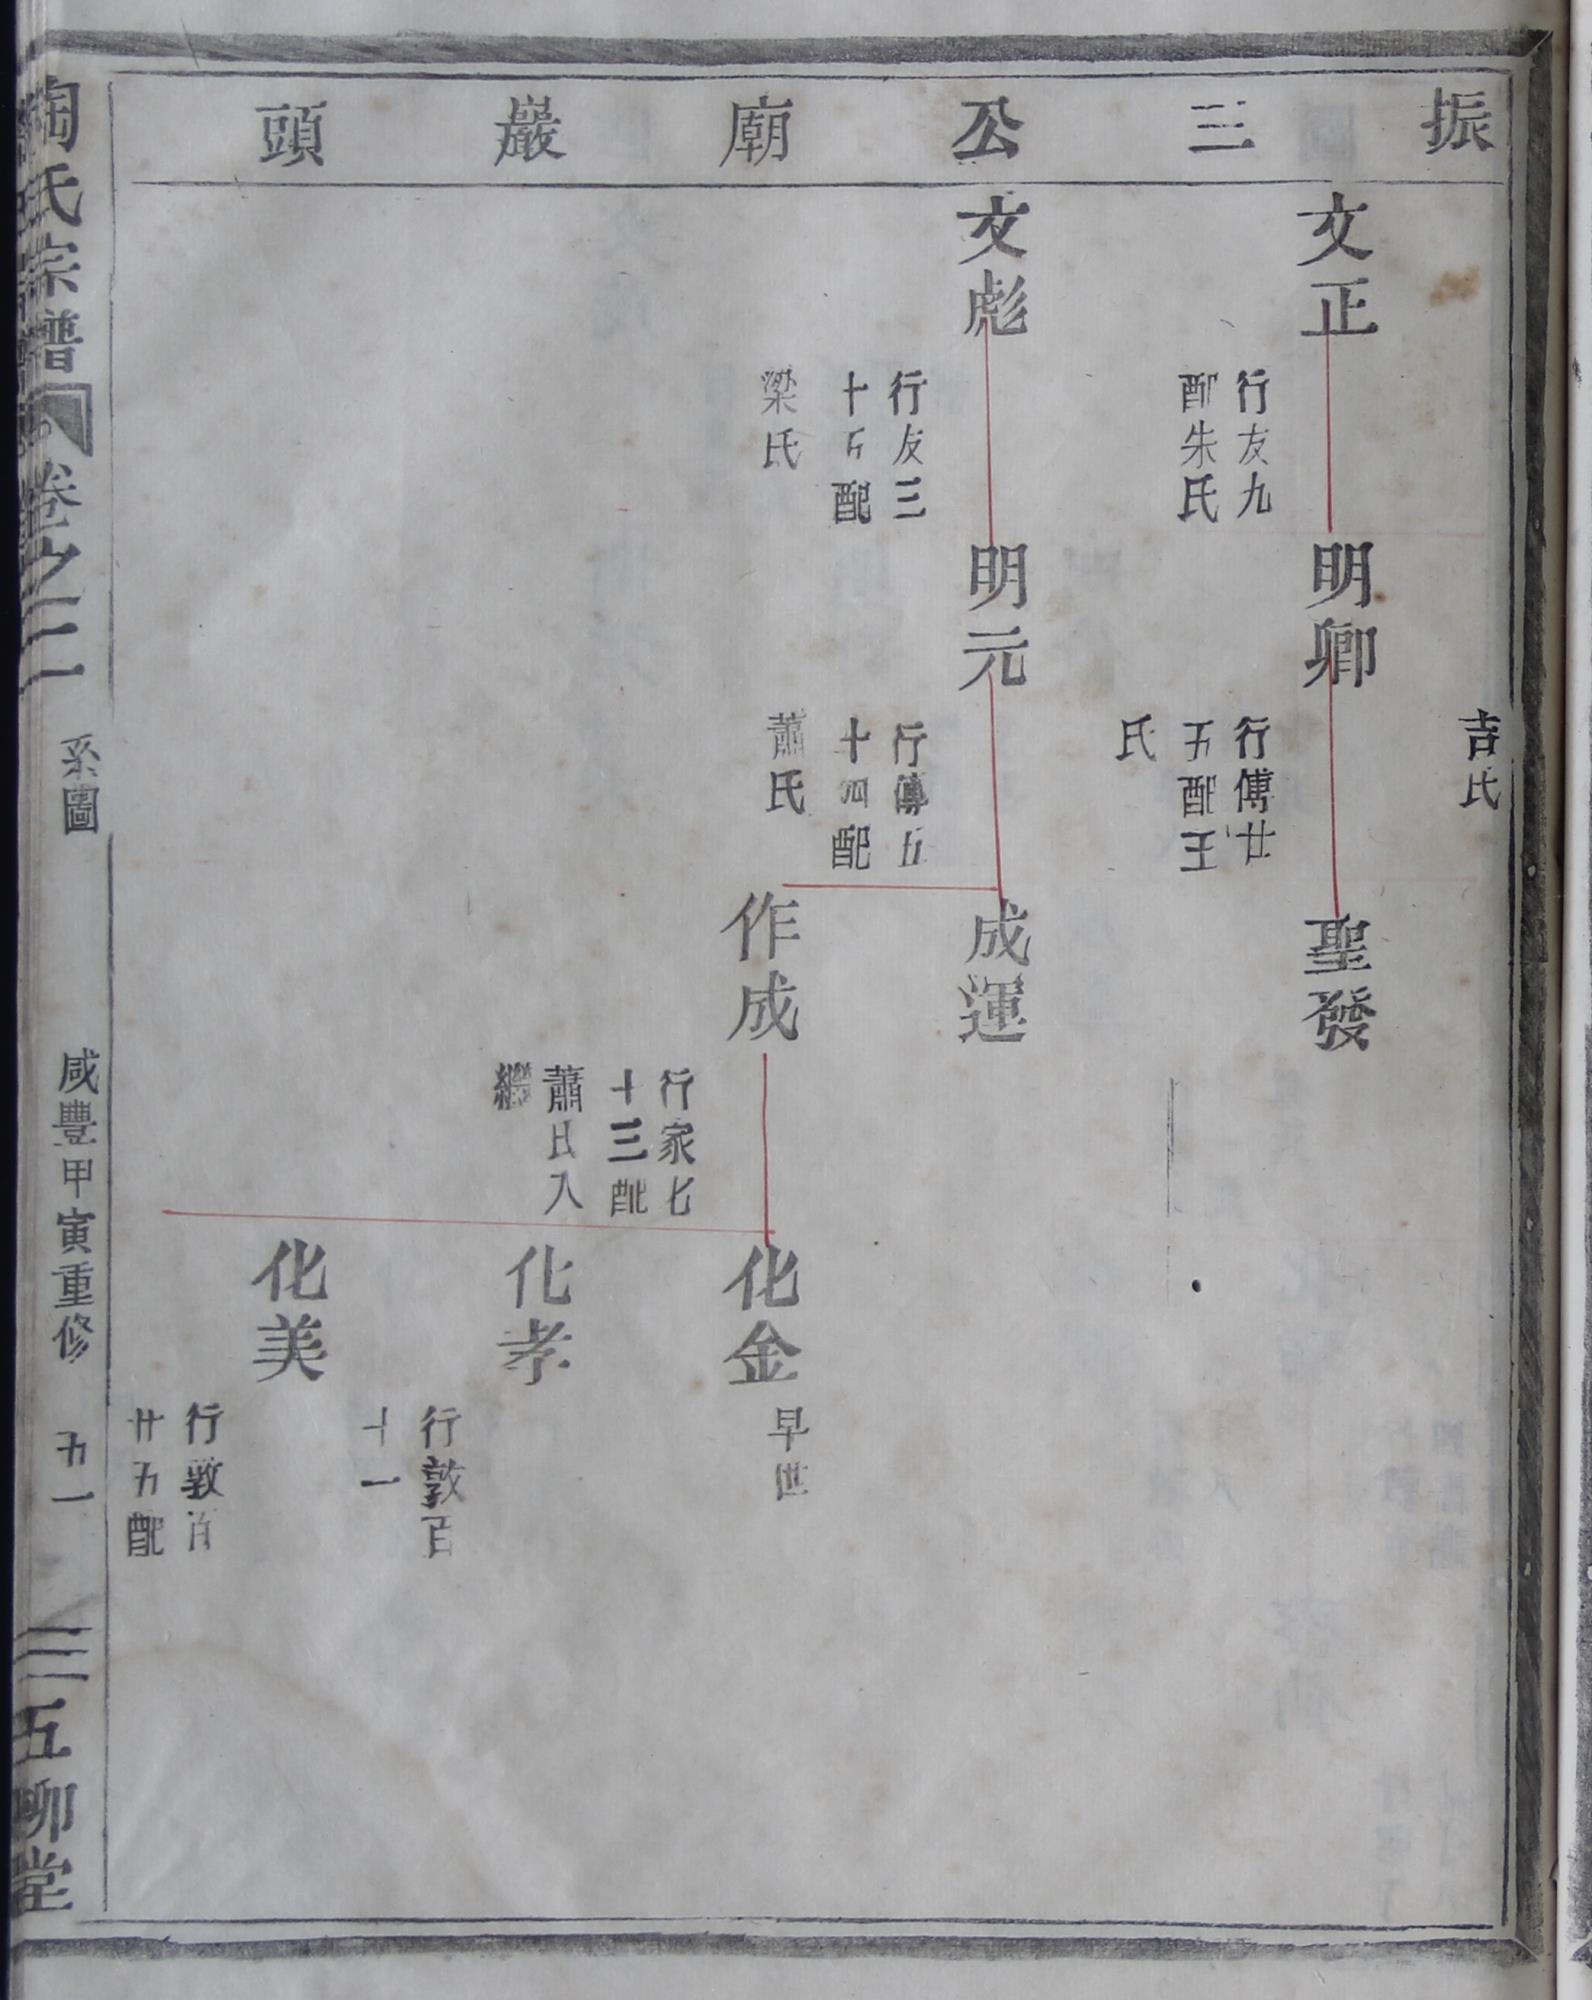 振三公廟巖頭
吉氏
文正
行友九
配朱氏
明卿
行傅廿
五配王
氏
聖發
文彪
行友三
十五配
梁氏
明元
行傅五
十四配
蕭氏
成運
作成
行家七
十三配
蕭氏入
繼
化金
早世
化孝
行敦百
十一
化美
行敦百
廿五配
陶氏宗譜
卷之二
系圖
咸豐甲寅重修
五一
五柳堂